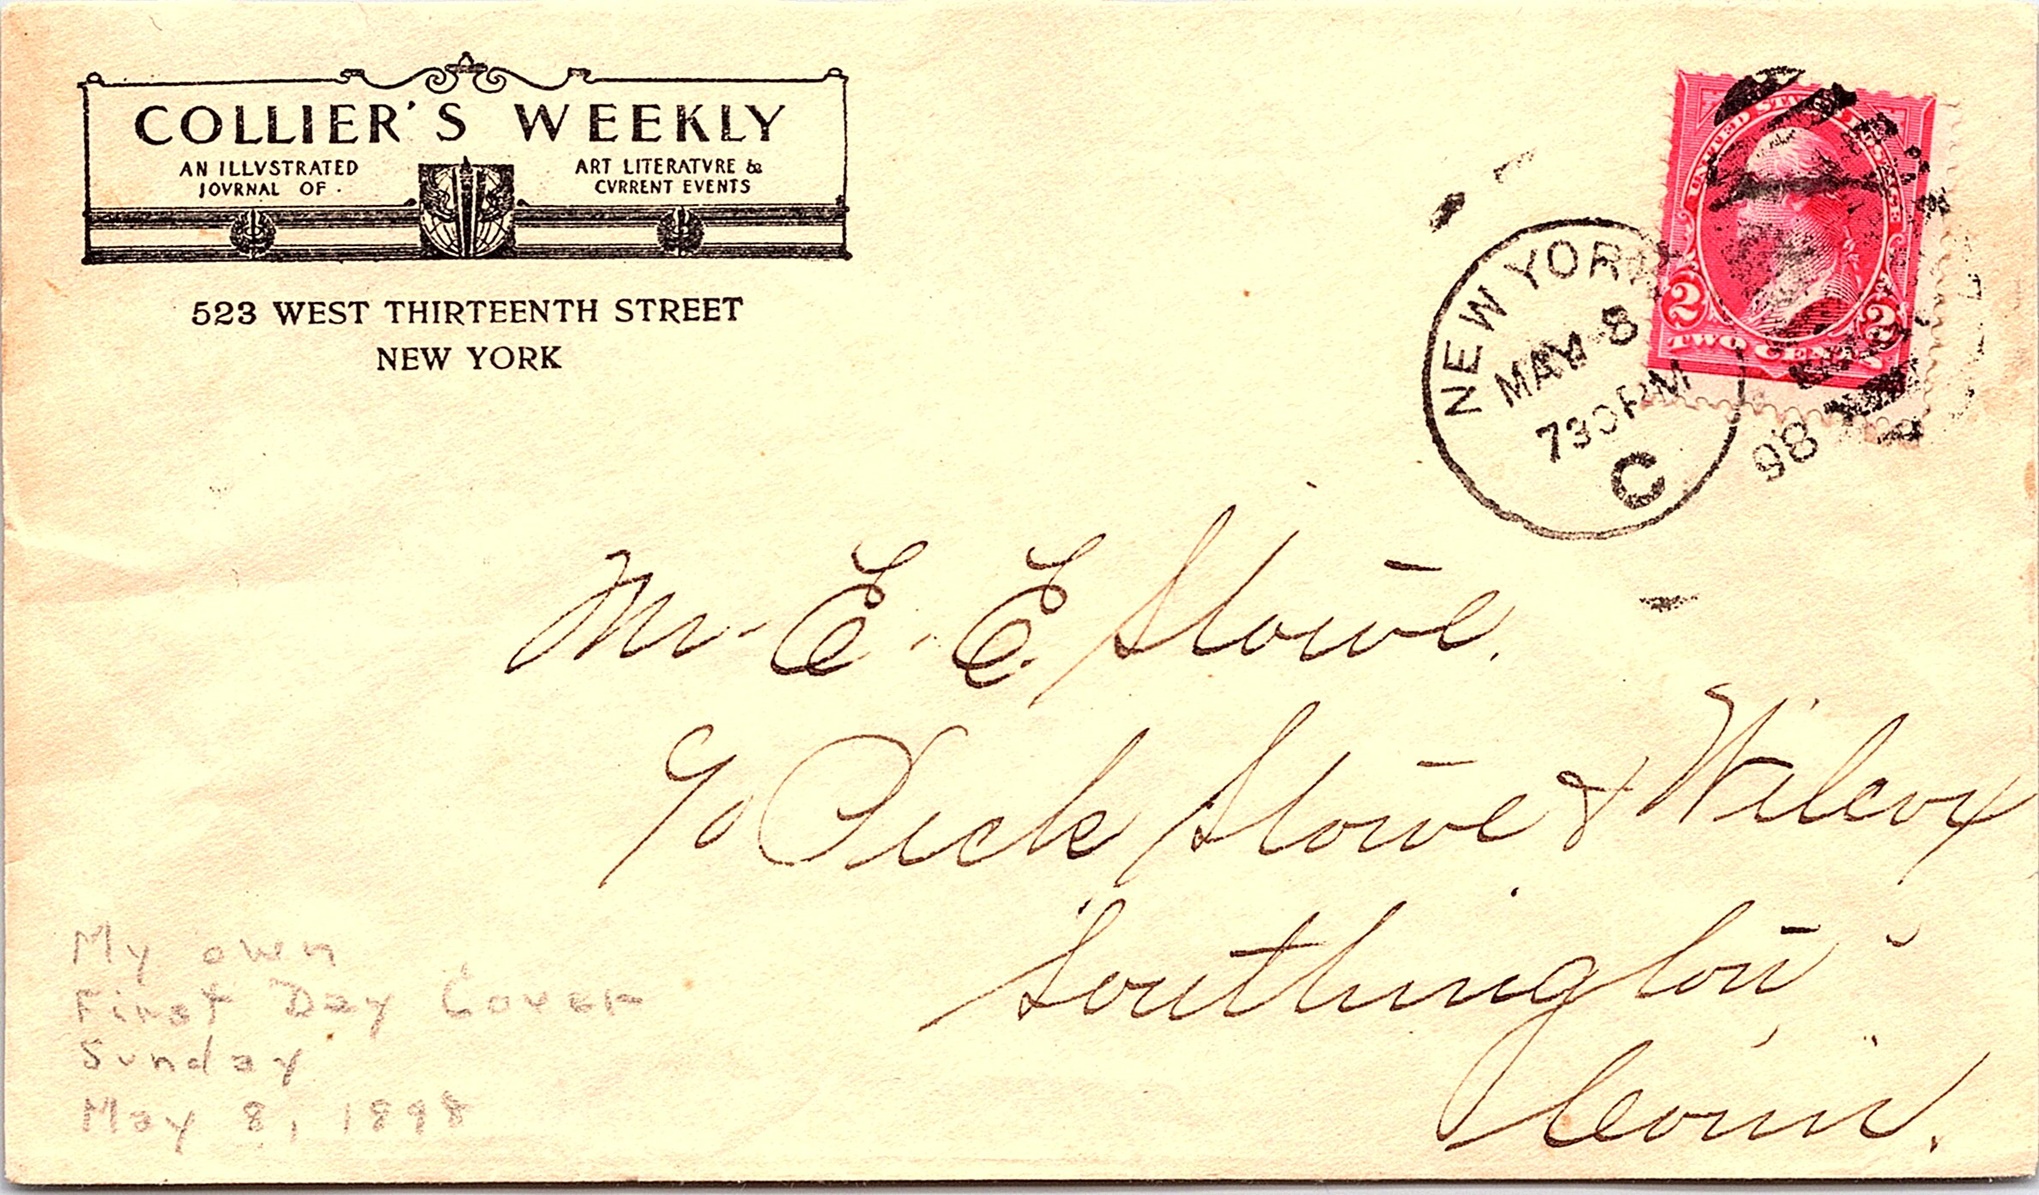 COLLIER'S WEEKLY
AN ILLVSTRATED
JOVRNAL OF
ART LITERATVRE &
CVRRENT EVENTS
523 WEST THIRTEENTH STREET
NEW YORK
UNITED STATES POSTAGE
2 2
TWO CENTS
NEW YORK
MAY 8
730PM
C
98
Mr. E. E. Stowe.
c/o Peck Stowe & Wilcox
Southington
Conn.
My own
First Day Cover
Sunday
May 8, 1898